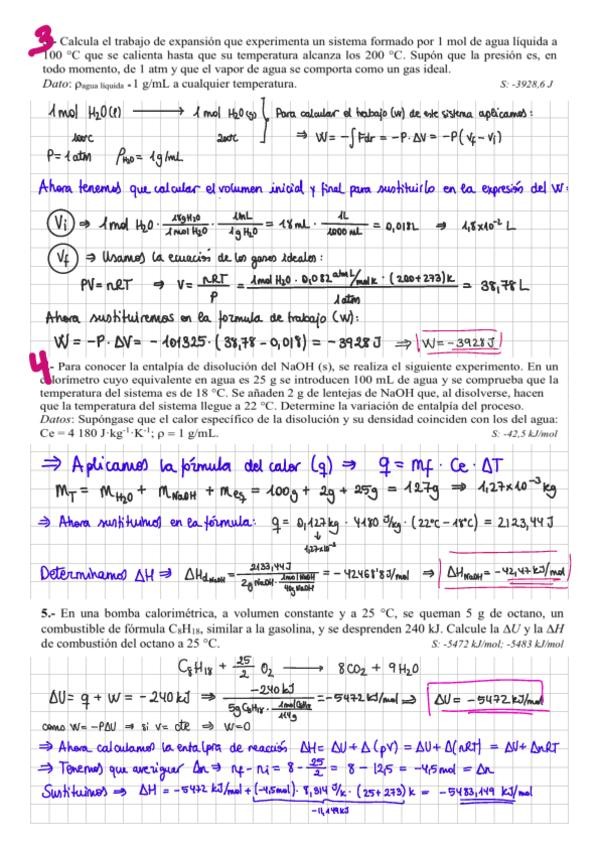 3.- Calcula el trabajo de expansión que experimenta un sistema formado por 1 mol de agua líquida a
100 °C que se calienta hasta que su temperatura alcanza los 200 °C. Supón que la presión es, en
todo momento, de 1 atm y que el vapor de agua se comporta como un gas ideal.
Dato: ρagua líquida = 1 g/mL a cualquier temperatura. S: -3928,6 J
1mol H₂O(l) ⟶ 1mol H₂O(g) Para calcular el trabajo (w) de este sistema aplicamos:
100ºC 200ºC ⇒ W = -∫Fdr = -P·ΔV = -P(Vf - Vi)
P=1atm ρH₂O = 1g/mL
Ahora tenemos que calcular el volumen inicial y final para sustituirlo en la expresión del W:
Vi ⇒ 1mol H₂O · 18gH₂O/1mol H₂O · 1mL/1g H₂O = 18mL · 1L/1000 mL = 0,018L ⇒ 1,8x10⁻² L
Vf ⇒ Usamos la ecuación de los gases ideales:
PV=nRT ⇒ V = nRT/P = 1mol H₂O · 0,082 atmL/molK · (200+273)K / 1atm = 38,78L
Ahora sustituiremos en la formula de trabajo (W):
W = -P·ΔV = - 101325 · (38,78 - 0,018) = -3928J ⇒ W = -3928J
4.- Para conocer la entalpía de disolución del NaOH (s), se realiza el siguiente experimento. En un
calorímetro cuyo equivalente en agua es 25 g se introducen 100 mL de agua y se comprueba que la
temperatura del sistema es de 18 °C. Se añaden 2 g de lentejas de NaOH que, al disolverse, hacen
que la temperatura del sistema llegue a 22 °C. Determine la variación de entalpía del proceso.
Datos: Supóngase que el calor específico de la disolución y su densidad coinciden con los del agua:
Ce = 4 180 J·kg⁻¹·K⁻¹; ρ = 1 g/mL. S: -42,5 kJ/mol
⇒ Aplicamos la fórmula del calor (q) ⇒ q = mf · Ce · ΔT
MT = MH₂O + MNaOH + Meq = 100g + 2g + 25g = 127g ⇒ 1,27x10⁻³ kg
⇒ Ahora sustituimos en la fórmula: q = 0,127kg · 4180 J/kg · (22ºC - 18ºC) = 2123,44J
↓
1,27x10⁻³
Determinamos ΔH ⇒ ΔHdNaOH = 2133,44J / 2g NaOH · 1mol NaOH/40g NaOH = -42468'8J/mol ⇒ ΔHNaOH = -42,47kJ/mol
5.- En una bomba calorimétrica, a volumen constante y a 25 °C, se queman 5 g de octano, un
combustible de fórmula C₈H₁₈, similar a la gasolina, y se desprenden 240 kJ. Calcule la ΔU y la ΔH
de combustión del octano a 25 °C. S: -5472 kJ/mol; -5483 kJ/mol
C₈H₁₈ + 25/2 O₂ ⟶ 8CO₂ + 9H₂O
ΔU = q + W = -240kJ ⇒ -240kJ / 5g C₈H₁₈ · 1mol C₈H₁₈/114g = -5472kJ/mol ⇒ ΔU = -5472kJ/mol
como W = -PΔU ⇒ si V = cte ⇒ W=0
⇒ Ahora calculamos la entalpía de reacción ΔH = ΔU + Δ(pV) = ΔU + Δ(nRT) = ΔU + ΔnRT
⇒ Tenemos que averiguar Δn ⇒ nf - ni = 8 - 25/2 = 8 - 12,5 = -4,5mol = Δn
Sustituimos ⇒ ΔH = -5472 kJ/mol + (-4,5mol) · 8,314 J/K · (25+273)K = -5483,149 kJ/mol
-11,149kJ